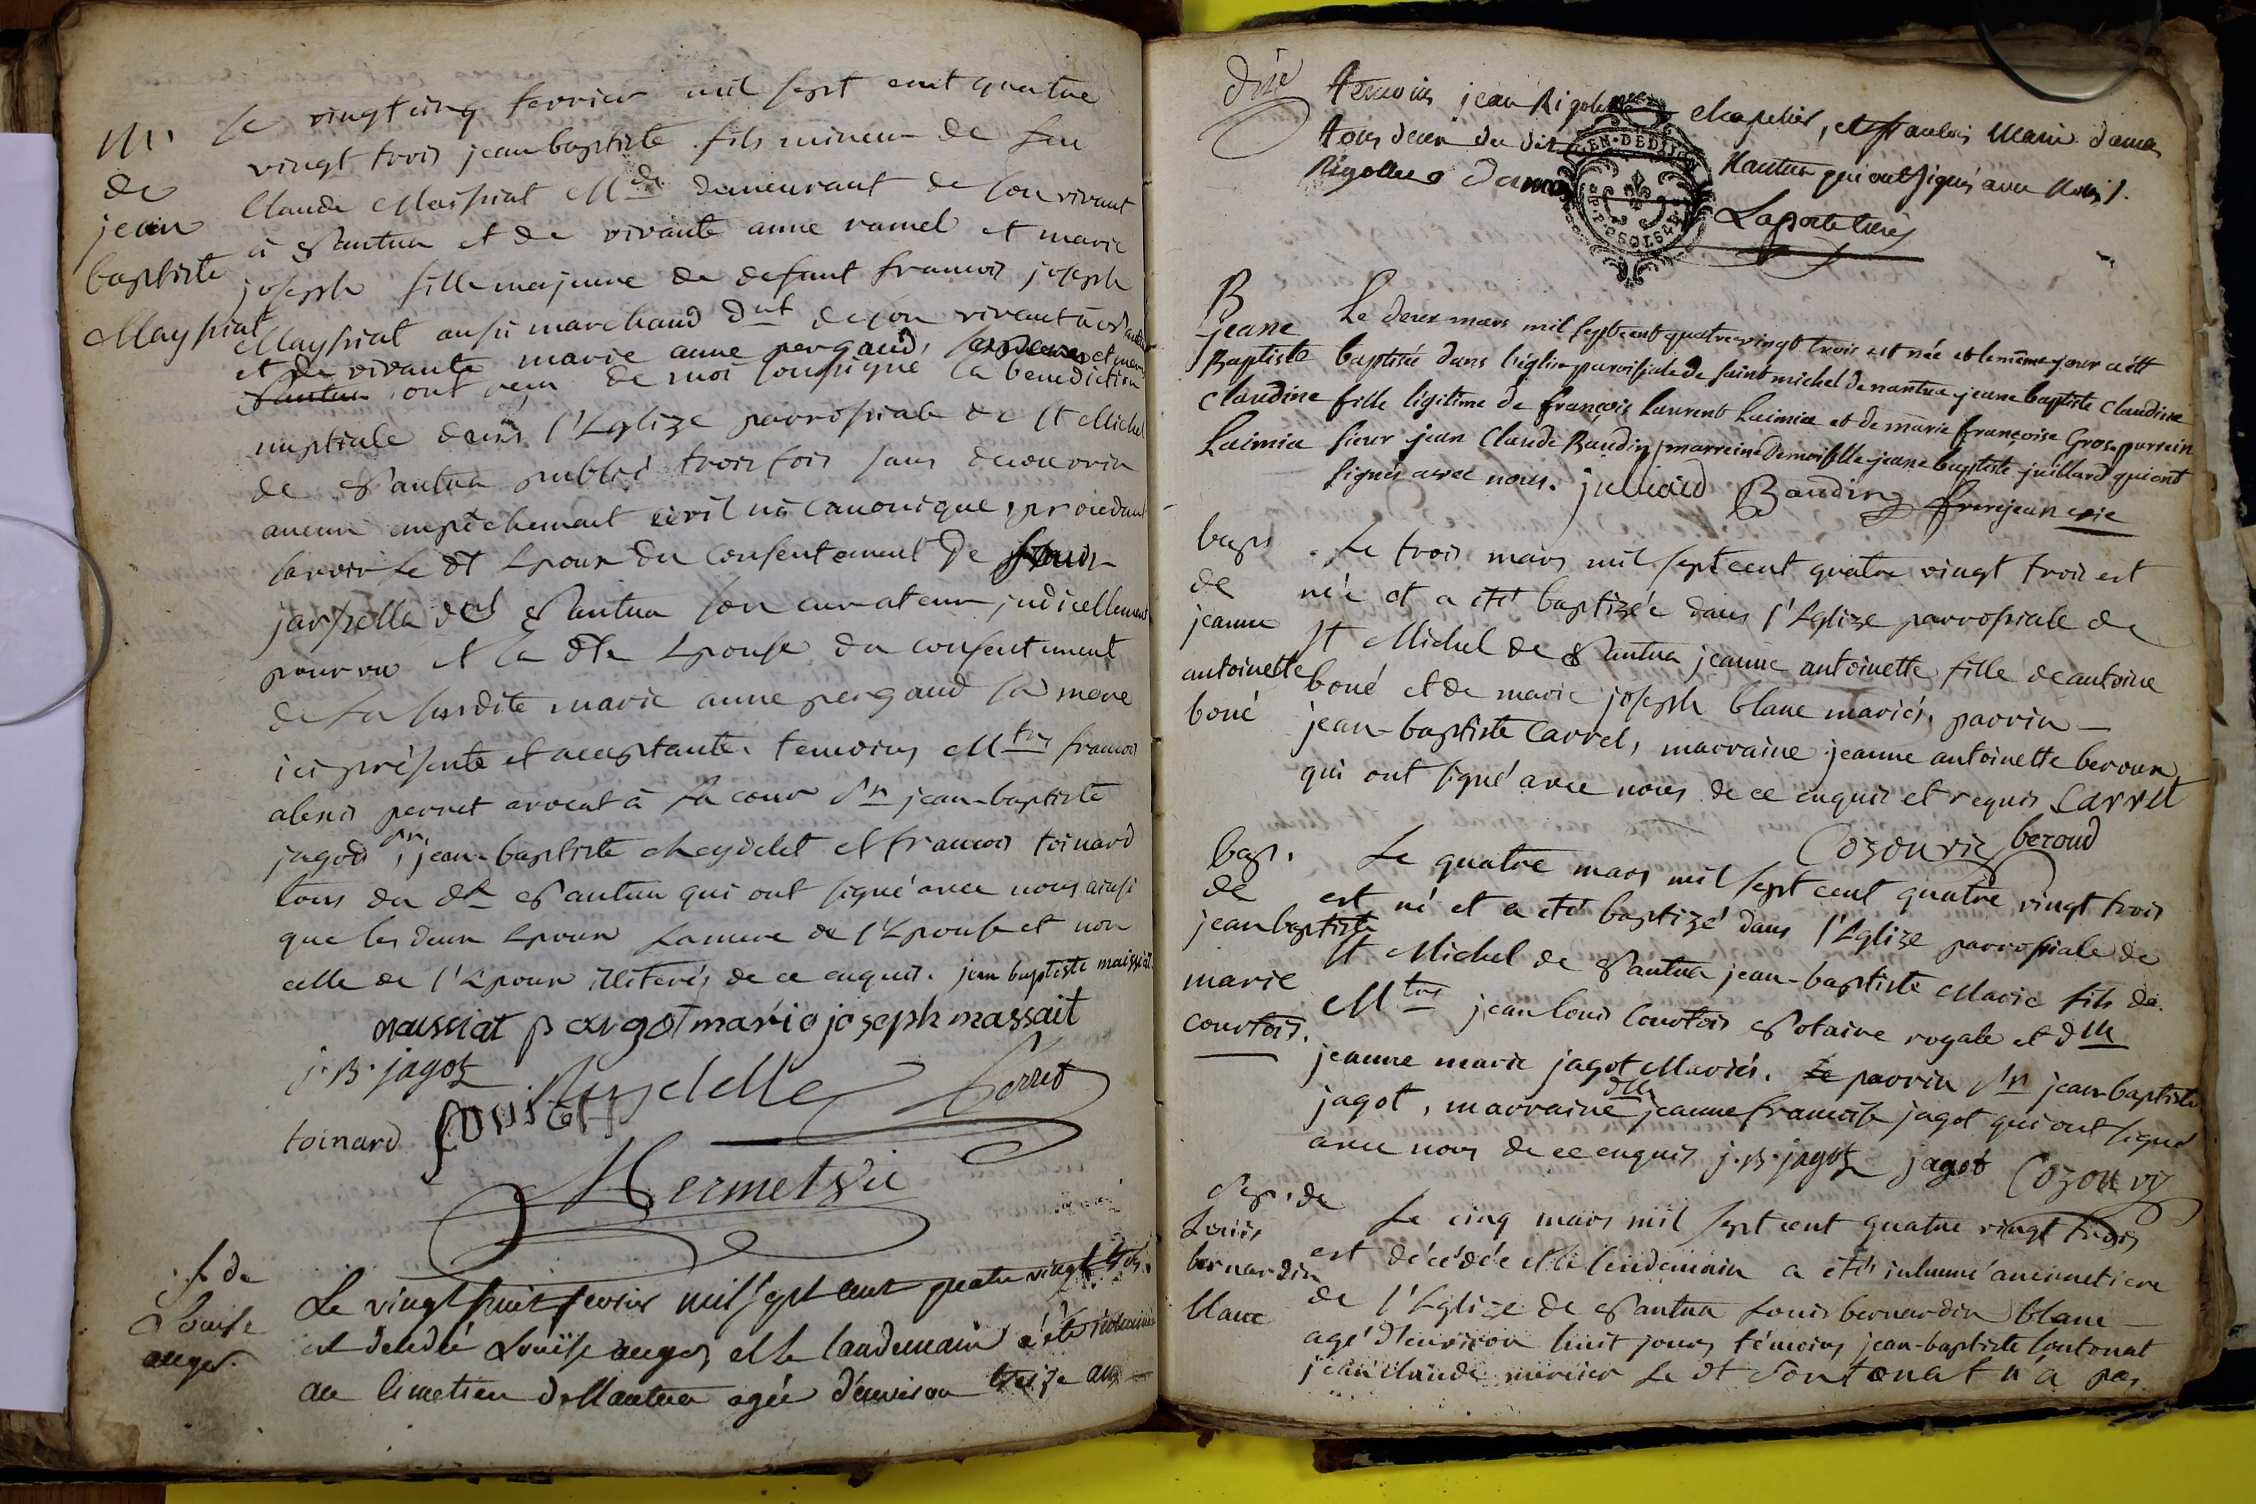 M.
de
jean
baptiste
Maysiat
Le vingt cinq fevrier mil sept cent quatre
vingt trois jean baptiste fils mineur de feu
Claude Maissiat Md demeurant de son vivant
à Nantua et de vivante anne ramel et marie
joseph fille majeure de defunt francois joseph
Maysiat aussi marchand dnt de son vivant à
et de vivante marie anne pergaud,
Nantua, ont reçu de moi soussigné la benediction
nuptiale dans l'Eglize parroissiale de St Michel
de Nantua publié trois fois sans decouvrir
aucun empêchement civil ni canonique, procedant
savoir le dt Epoux du consentement de
jarsella de Nantua son curateur judicellement
pourvu et la dte Epouse du consentement
de la susdite marie anne pergaud sa mere
ici présente et acceptante. temoins Mtre francois
alexis perret avocat à la cour Sr jean-baptiste
jagod, Sr jean-baptiste cheydelet et francois toinard
tous du dt Nantua qui ont signé avec nous ainsi
que les deux Epoux la mere de l'Epouse et non
celle de l'Epoux illiterés de ce enquis. jean baptiste maissiat
maissiat pargot marie joseph massait
j. B. jagot
Perret
toinard
Mermet vic
f. de
Louise
auger.
Le vingt huit fevrier mil sept cent quatre vingt trois
est decedée Louise auger et le landemain a été inhumée
au cimetiere de Nantua agée d'environ treize ans
Dixe
temoins jean Rigollet chapelier, et francois Marie dama
tous deux du dit Nantua qui ont signé avec Nous.
Rigollet Dama
EN-DEDIJON
Laporte
B
jeane
Baptiste
Claudine
Laimia
Le deux mars mil sept cent quatre vingt trois est née et le même jour a été
baptisée dans l'église paroissiale de saint michel de nantua jeane baptiste claudine
fille légitime de françois Laurent Laimia et de marie françoise Gros parrein
sieur jean Claude Baudin, marreine demoiselle jeane baptiste juillard qui ont
signés avec nous. juliard Baudin frerejean vic
bap
de
jeanne
antoinette
boné
Le trois mars mil sept cent quatre vingt trois est
née et a été baptizée dans l'Eglize parroissiale de
St Michel de Nantua jeanne antoinette fille de antoine
boné et de marie joseph blanc mariés, parrin
jean-baptiste Carrel, marraine jeanne antoinette beroux
qui ont signé avec nous de ce enquis et requis Carrel
Cozon vic beroud
bap.
de
jean baptiste
marie
courtois.
Le quatre mars mil sept cent quatre vingt trois
est né et a été baptizé dans l'Eglize parroissiale de
St Michel de Nantua jean-baptiste Marie fils de
Mtre jean louis Courtois Notaire royale et dlle
jeanne marie jagot Mariés. parrin Sr jean baptiste
jagot, marraine dlle jeanne francoise jagot qui ont signé
avec nous de ce enquis j. B. jagot jagot Cozon vic
Sep. de
Louis
bernardin
blanc
Le cinq mars mil sept cent quatre vingt trois
est décédée et le lendemain a été inhumé au cimetiere
de l'Eglize de Nantua Louis bernardin blanc
agé d'environ huit jours témoins jean-baptiste tontonat
jean claude mercier Le dt tontonat n'a pas